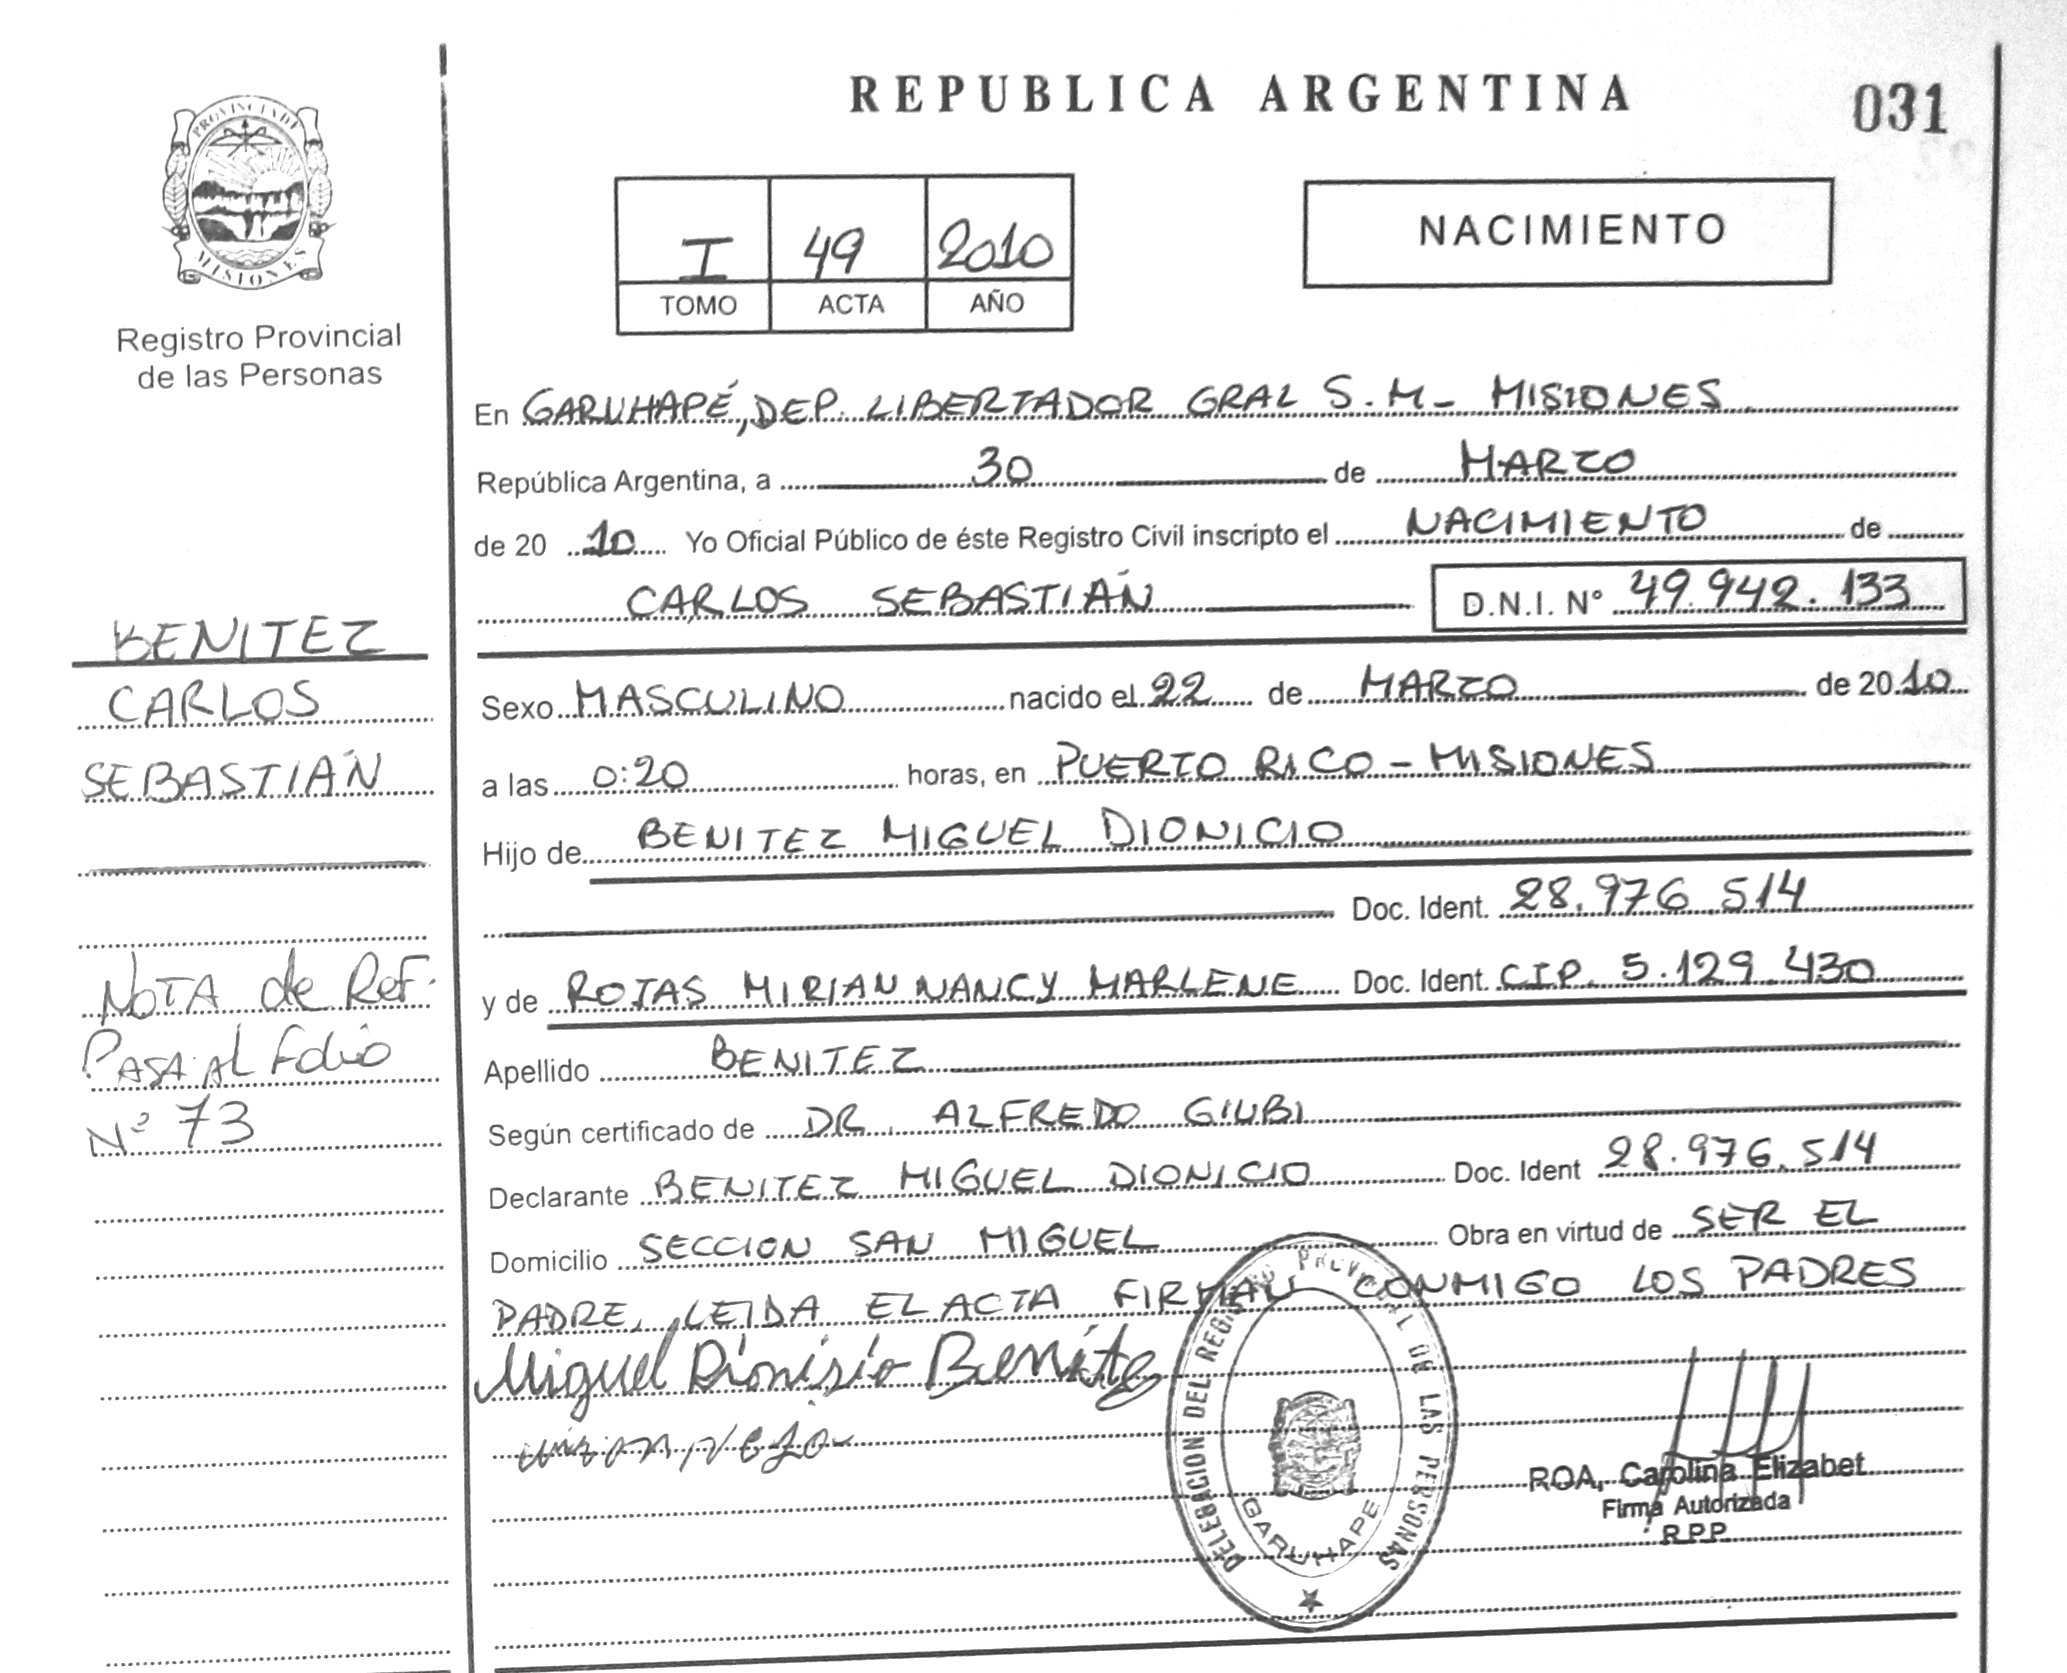 REPUBLICA ARGENTINA
031
PROVINCIA DE MISIONES
Registro Provincial
de las Personas
I 49 2010
TOMO ACTA AÑO
NACIMIENTO
En GARUHAPÉ, DEP. LIBERTADOR GRAL S.M- MISIONES
República Argentina, a 30 de MARZO
de 2010 Yo Oficial Público de éste Registro Civil inscripto el NACIMIENTO de
CARLOS SEBASTIÁN D.N.I. N° 49.942.133
BENITEZ
CARLOS
SEBASTIÁN
NOTA de Ref.
PASA AL Folio
N° 73
Sexo MASCULINO nacido el 22 de MARZO de 2010
a las 0:20 horas, en PUERTO RICO - MISIONES
Hijo de BENITEZ MIGUEL DIONICIO
Doc. Ident. 28.976.514
y de ROJAS MIRIAN NANCY MARLENE Doc. Ident. CIP. 5.129.430
Apellido BENITEZ
Según certificado de DR. ALFREDO GIUBI
Declarante BENITEZ MIGUEL DIONICIO Doc. Ident 28.976.514
Domicilio SECCION SAN MIGUEL Obra en virtud de SER EL
PADRE, LEIDA EL ACTA FIRMAN CONMIGO LOS PADRES
Miguel Dionisio Benitez
DELEGACION DEL REGISTRO PROVINCIAL DE LAS PERSONAS
GARUHAPE
ROA, Carolina Elizabet
Firma Autorizada
R.P.P.